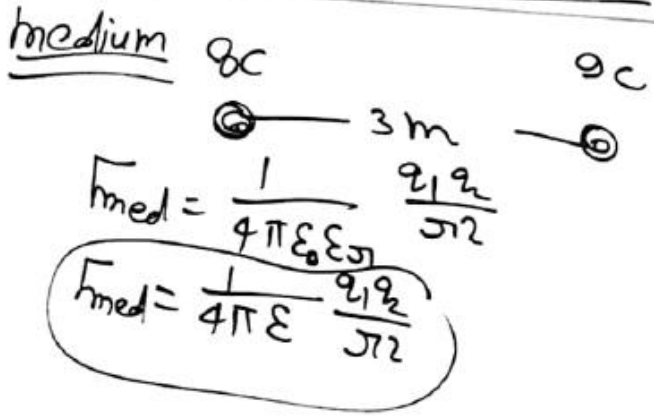 medium 8C 9C
3m
Fmed = 1/4πε₀εr q₁q₂/r2
Fmed = 1/4πε q₁q₂/r2